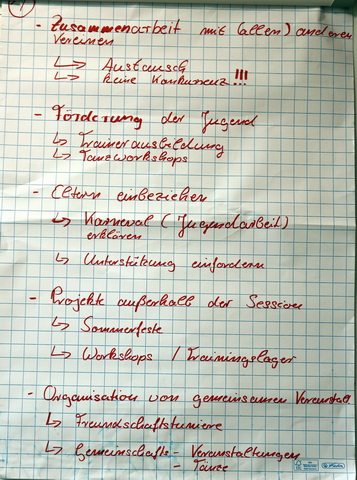 - Zusammenarbeit mit (allen) anderen
Vereinen
↳ Austausch
↳ keine Konkurrenz!!!
- Förderung der Jugend
↳ Trainerausbildung
↳ Tanzworkshops
- Eltern einbeziehen
↳ Karneval (Jugendarbeit)
erklären
↳ Unterstützung einfordern
- Projekte außerhalb der Session
↳ Sommerfeste
↳ Workshops / Trainingslager
- Organisation von gemeinsamen Veranstalt
↳ Freundschaftsturniere
↳ Gemeinschafts - Veranstaltungen
- Tänze